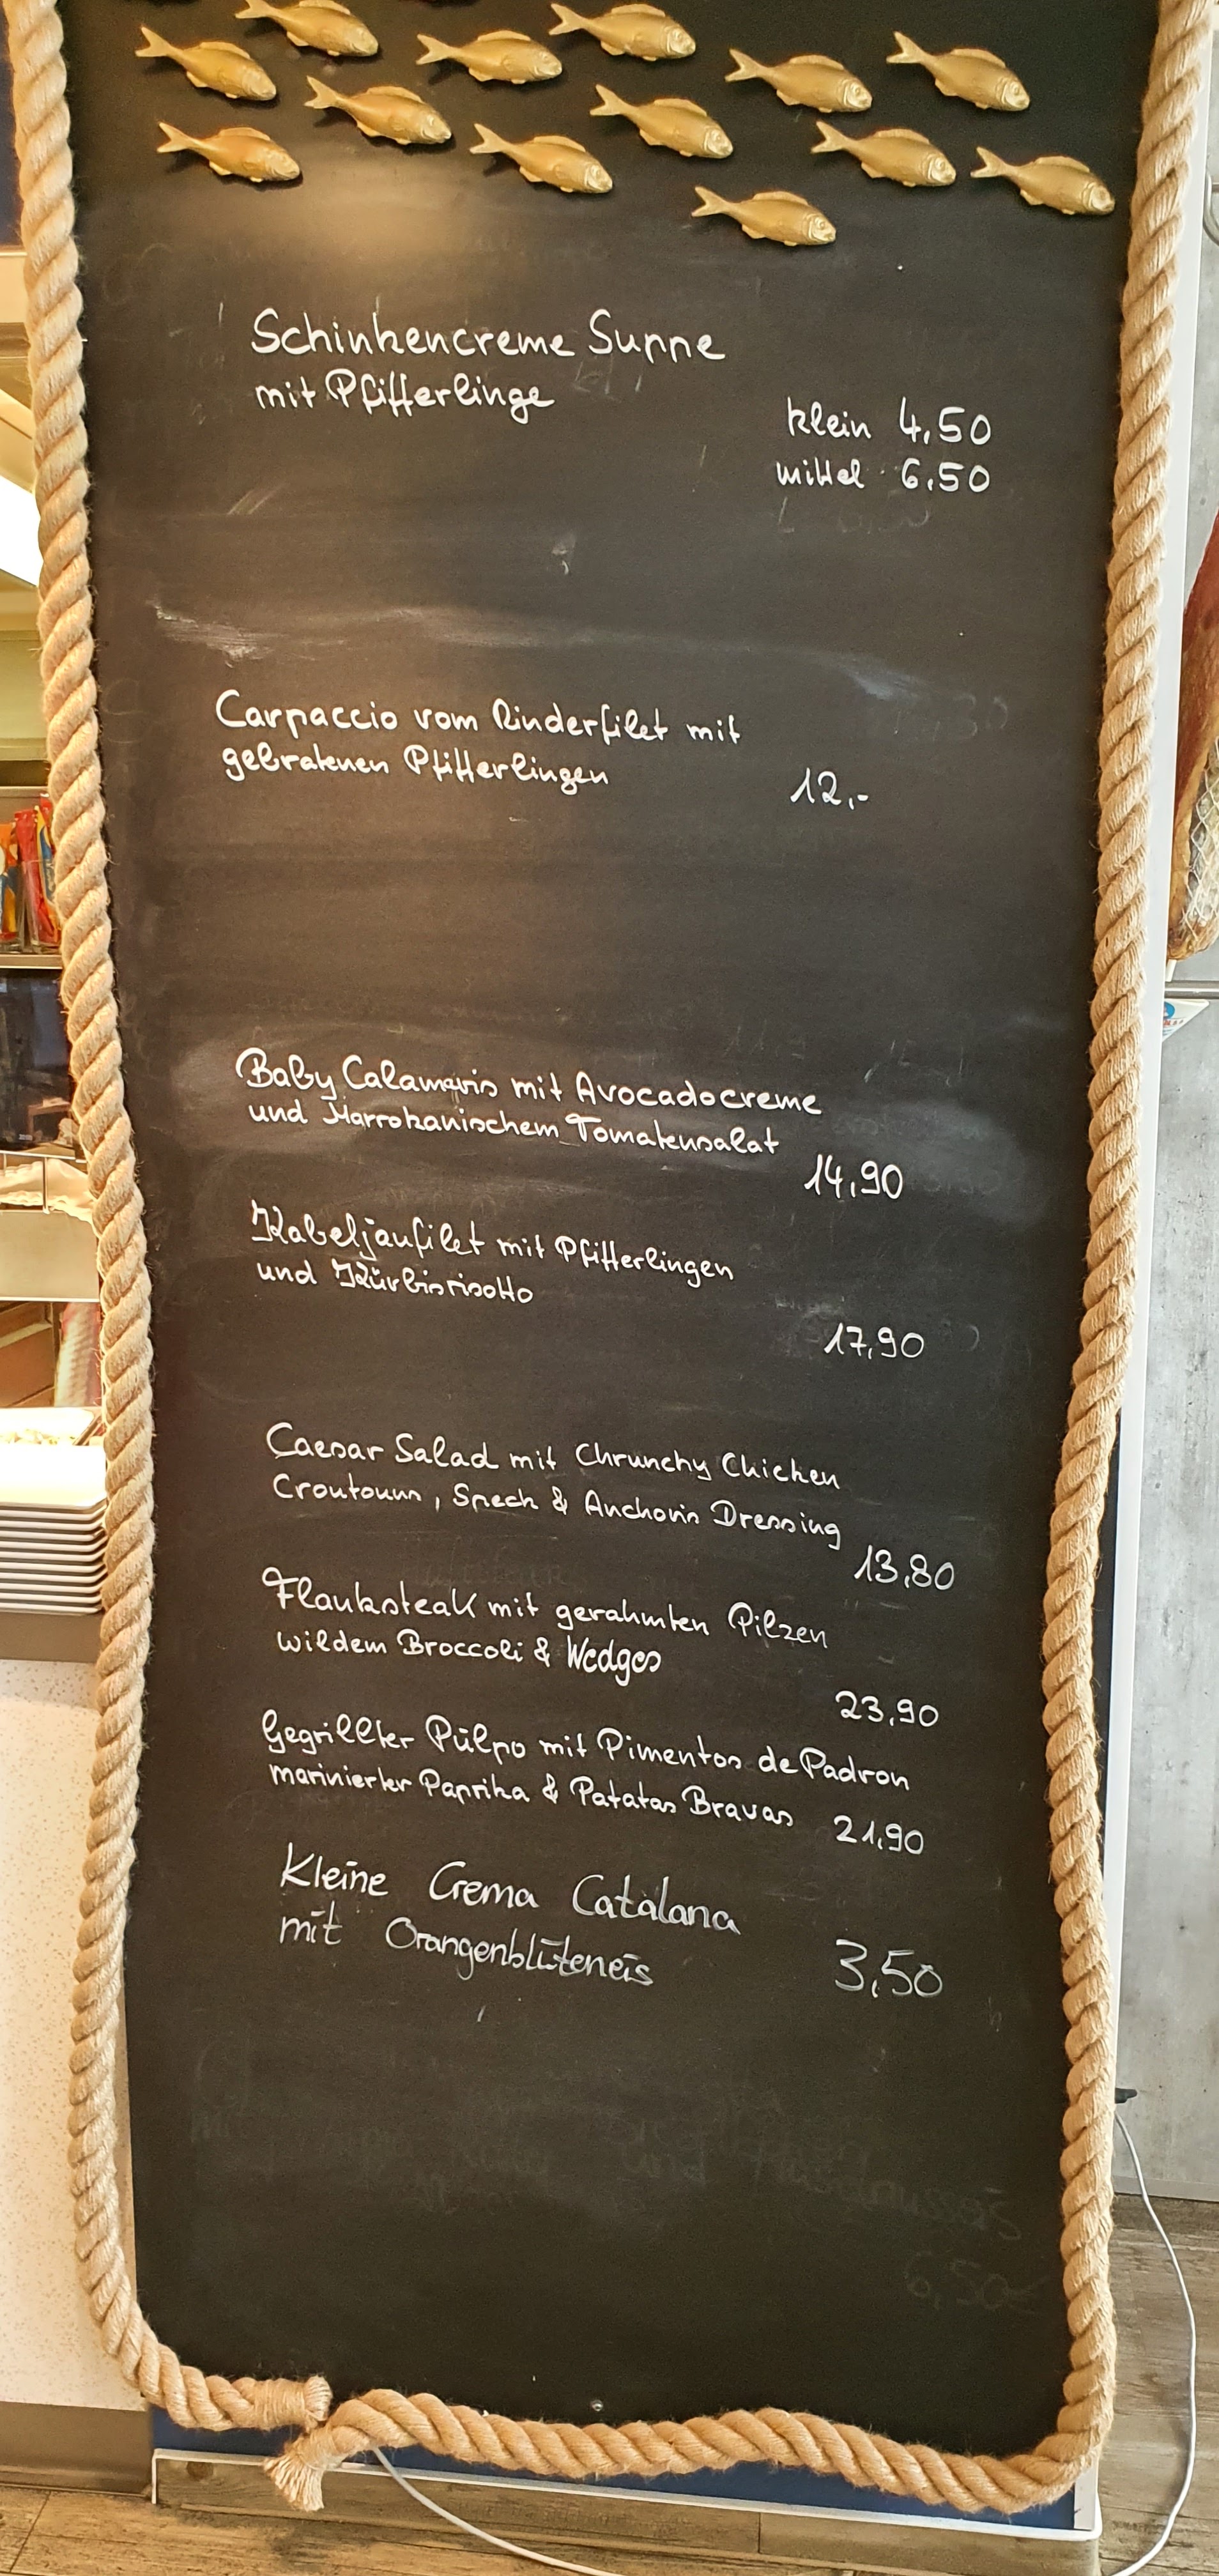 Schinkencreme Suppe
mit Pfifferlinge
klein 4,50
mittel 6,50
Carpaccio vom Rinderfilet mit
gebratenen Pfifferlingen
12,-
Baby Calamaris mit Avocadocreme
und Marrokanischem Tomatensalat
14,90
Kabeljaufilet mit Pfifferlingen
und Kürbisrisotto
17,90
Caesar Salad mit Chrunchy Chicken
Croutouns, Speck & Anchovis Dressing
13,80
Flanksteak mit gerahmten Pilzen
wildem Broccoli & Wedges
23,90
Gegrillter Pülpo mit Pimentos de Padron
marinierter Paprika & Patatas Bravas 21,90
Kleine Crema Catalana
mit Orangenblüteneis
3,50
6,50